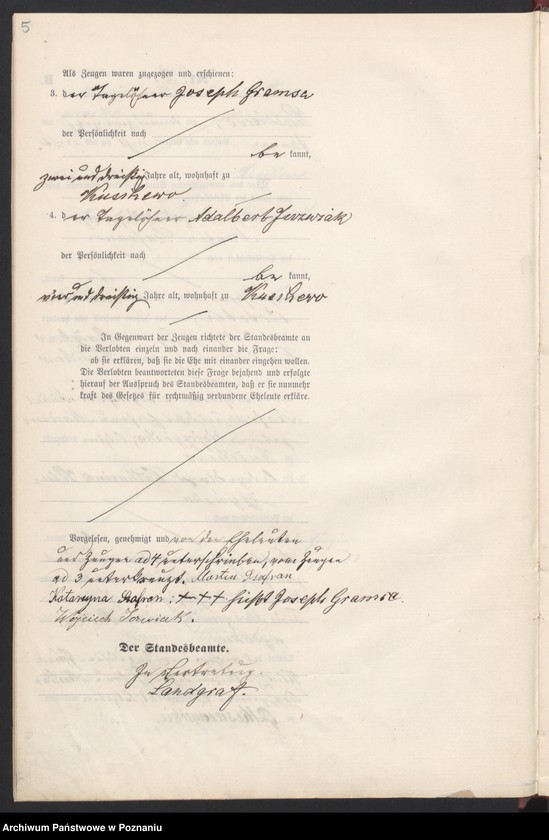 5
Als Zeugen waren zugezogen und erschienen:
3. der Tagelöhner Joseph Gramsa
der Persönlichkeit nach
be kannt,
zwei und dreißig Jahre alt, wohnhaft zu
4. der Tagelöhner Adalbert Juzwiak
der Persönlichkeit nach
be kannt,
vier und dreißig Jahre alt, wohnhaft zu
In Gegenwart der Zeugen richtete der Standesbeamte an
die Verlobten einzeln und nach einander die Frage:
ob sie erklären, daß sie die Ehe mit einander eingehen wollen.
Die Verlobten beantworteten diese Frage bejahend und erfolgte
hierauf der Ausspruch des Standesbeamten, daß er sie nunmehr
kraft des Gesetzes für rechtmäßig verbundene Eheleute erkläre.
Vorgelesen, genehmigt und von den Eheleuten
und Zeugen ad 4 unterschrieben, vom Zeugen
ad 3 unterkreuzt. Martin
Katarzyna : +++ heißt Joseph Gramsa.
Wojciech
Der Standesbeamte.
In Vertretung.
Landgraf.
Archiwum Państwowe w Poznaniu